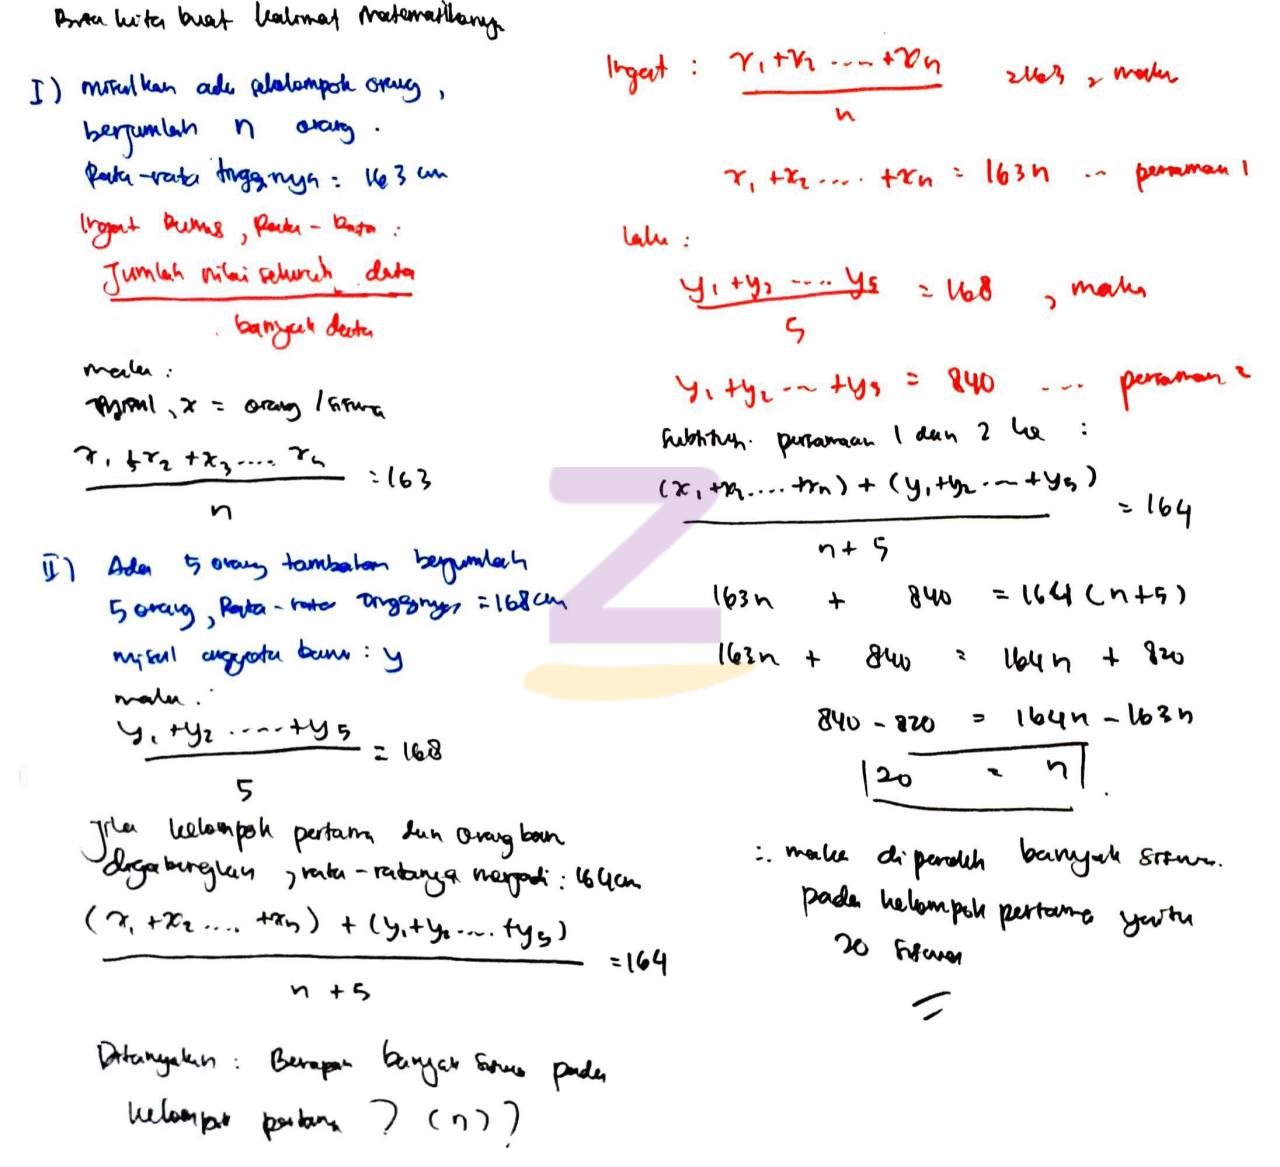 kita buat kalimat matematikanya
I) misalkan ada sekelompok orang,
berjumlah n orang.
Rata-rata tingginya = 163 cm
Ingat rumus, Rata-Rata :
Jumlah nilai seluruh data
banyak data
maka :
misal, x = orang / siswa
x₁ + x₂ + x₃ .... xₙ
= 163
n
II) Ada 5 orang tambahan berjumlah
5 orang, Rata-rata tingginya = 168 cm
misal anggota baru : y
maka :
y₁ + y₂ ..... + y₅
= 168
5
Jika kelompok pertama dan orang baru
digabungkan, rata-ratanya menjadi : 164 cm
(x₁ + x₂ .... + xₙ) + (y₁ + y₂ .... + y₅)
= 164
n + 5
Ditanyakan : Berapa banyak siswa pada
kelompok pertama ? (n) ?
Ingat : x₁ + x₂ .... + xₙ
= 163, maka
n
x₁ + x₂ .... + xₙ = 163n ... persamaan 1
lalu :
y₁ + y₂ .... y₅ = 168 , maka
5
y₁ + y₂ ... + y₅ = 840 .... persamaan 2
Subtitusi persamaan 1 dan 2 ke :
(x₁ + x₂ .... + xₙ) + (y₁ + y₂ ... + y₅)
= 164
n + 5
163n + 840 = 164 (n+5)
163n + 840 = 164n + 820
840 - 820 = 164n - 163n
20 = n
∴ maka diperoleh banyak siswa
pada kelompok pertama yaitu
20 siswa
Z